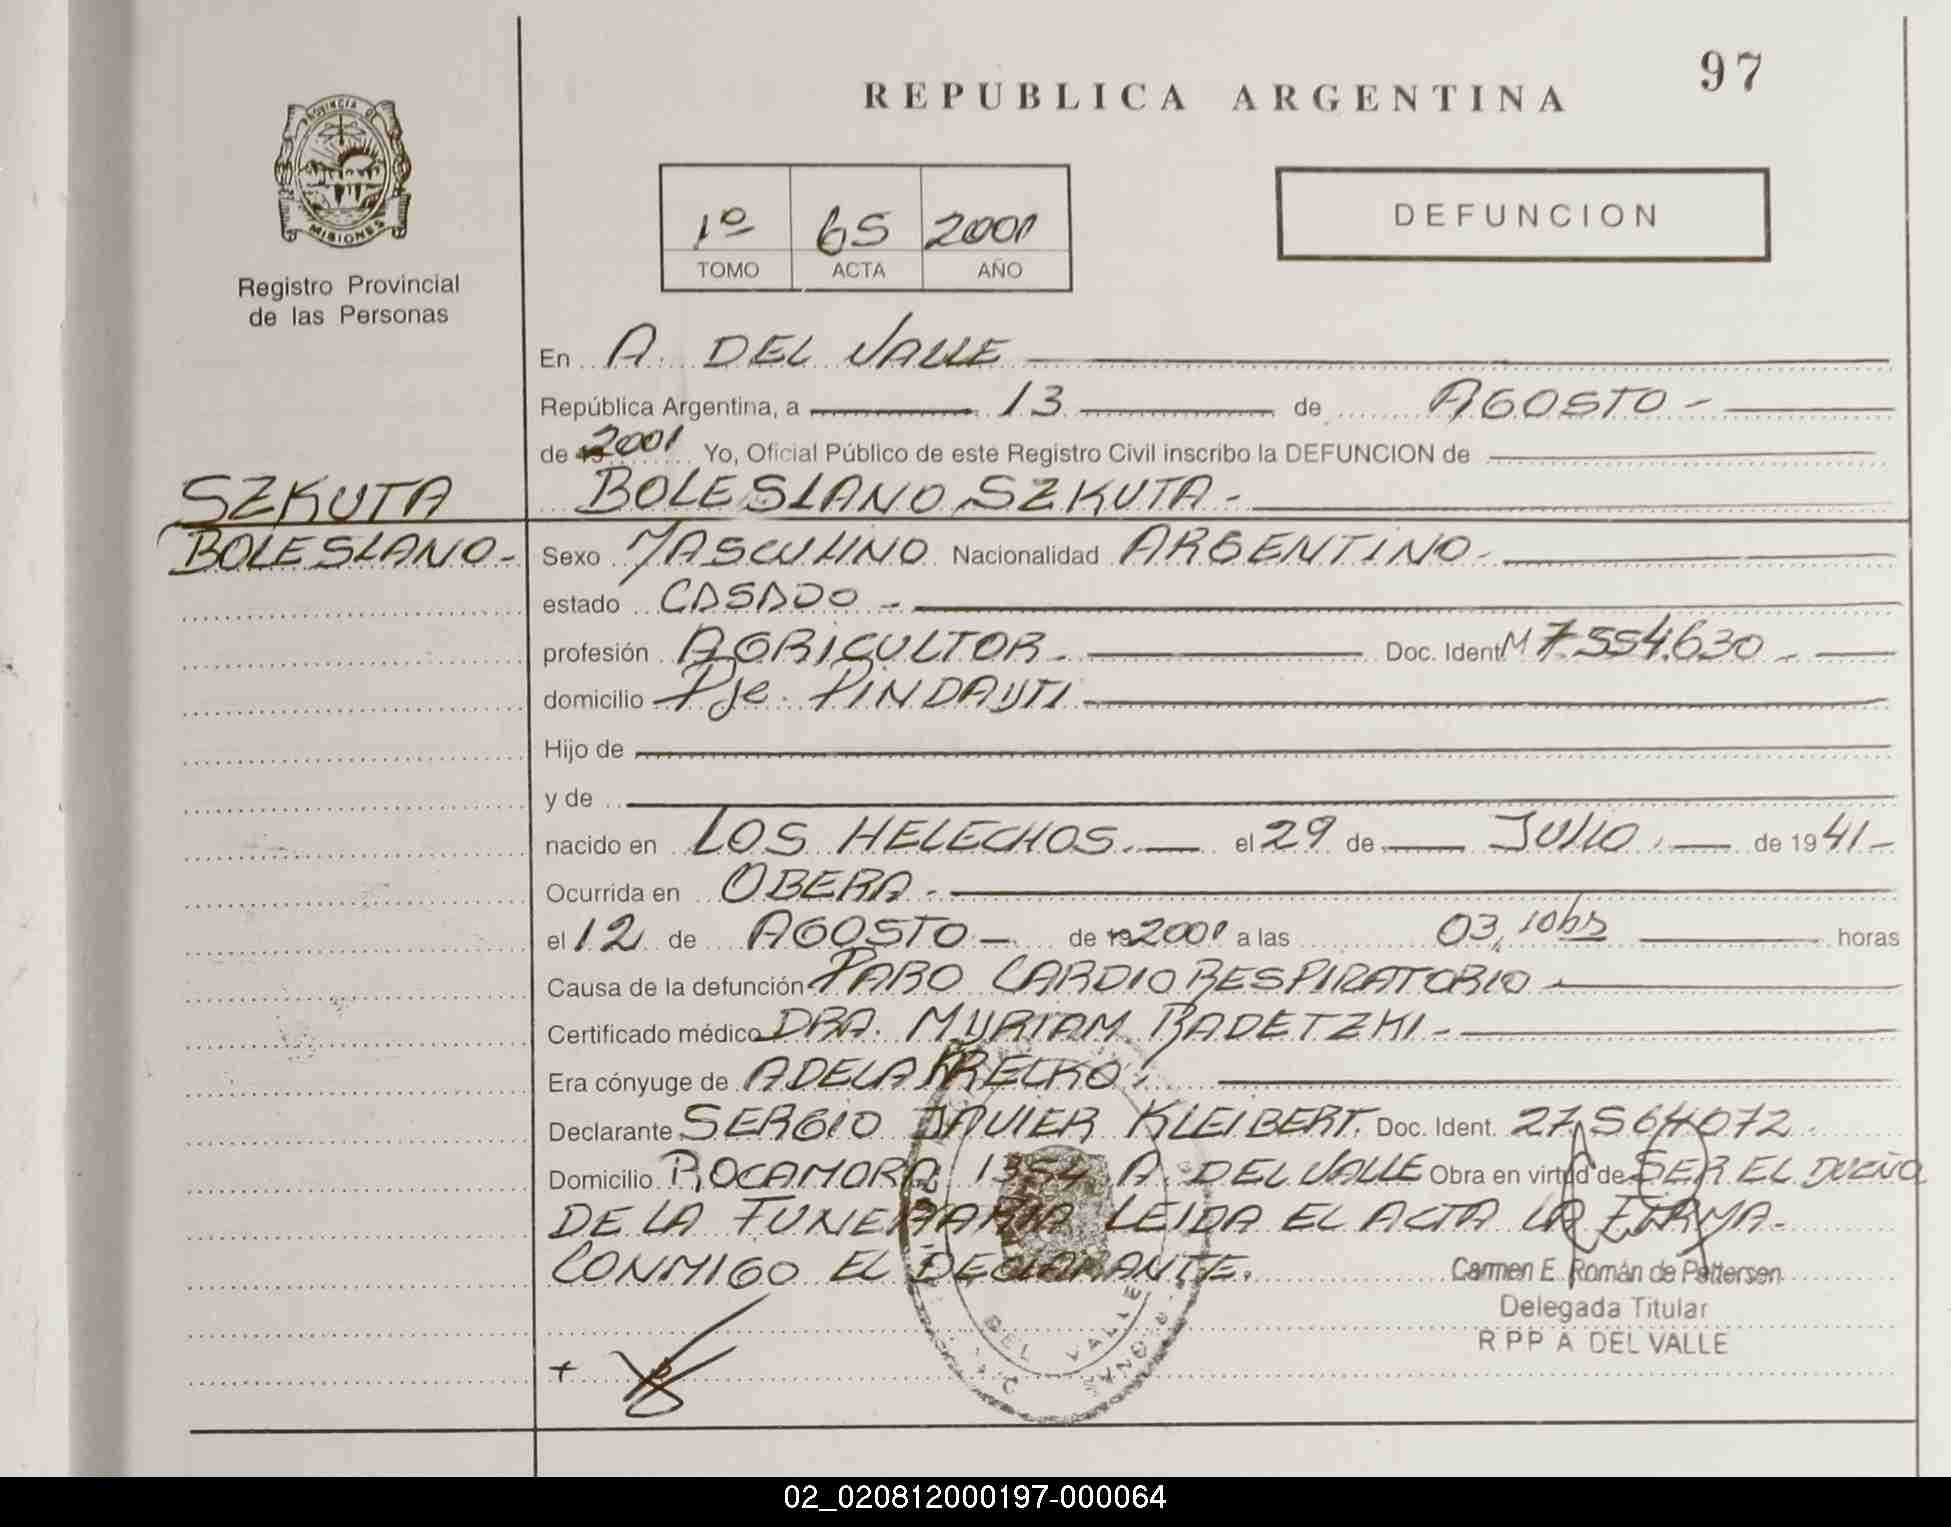 97
REPUBLICA ARGENTINA
DEFUNCION
PROVINCIA DE
MISIONES
Registro Provincial
de las Personas
1º 65 2001
TOMO ACTA AÑO
En A. DEL VALLE
República Argentina, a 13 de AGOSTO -
de 19 2001 Yo, Oficial Público de este Registro Civil inscribo la DEFUNCION de
BOLESLANO SZKUTA -
SZKUTA
BOLESLANO -
Sexo MASCULINO Nacionalidad ARGENTINO -
estado CASADO -
profesión AGRICULTOR - Doc. Ident. M 7.554.630 -
domicilio Pje. PINDAYTI
Hijo de
y de
nacido en LOS HELECHOS. el 29 de JULIO. de 1941 -
Ocurrida en OBERA -
el 12 de AGOSTO - de 19 2001 a las 03,10hs horas
Causa de la defunción PARO CARDIO RESPIRATORIO -
Certificado médico DRA. MYRIAM RADETZKI -
Era cónyuge de ADELA KRECKO.
Declarante SERGIO JAVIER KLEIBERT. Doc. Ident. 27564072
Domicilio ROCAMORA 1354 A. DEL VALLE Obra en virtud de SER EL DUEÑO
DE LA FUNERARIA LEIDA EL ACTA LA FIRMA -
CONMIGO EL DECLARANTE.
Carmen E. Román de Pettersen
Delegada Titular
R.P.P A DEL VALLE
DEL VALLE
+
02_020812000197-000064